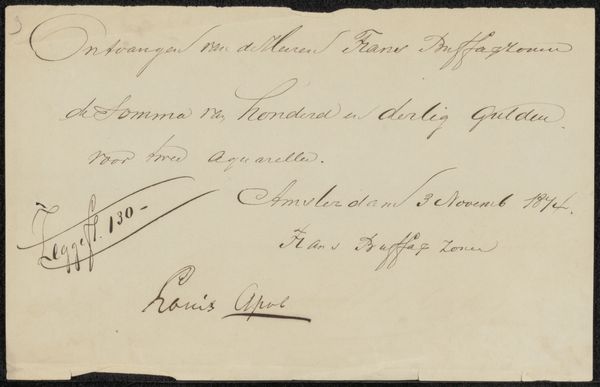 Ontvangen van de Heeren Frans Buffa & zonen
de Somma van honderd en dertig gulden
voor twee aquarellen.
Amsterdam 3 Novemb 1874.
Zegge fl. 130-
Frans Buffa & zonen
Louis Apol